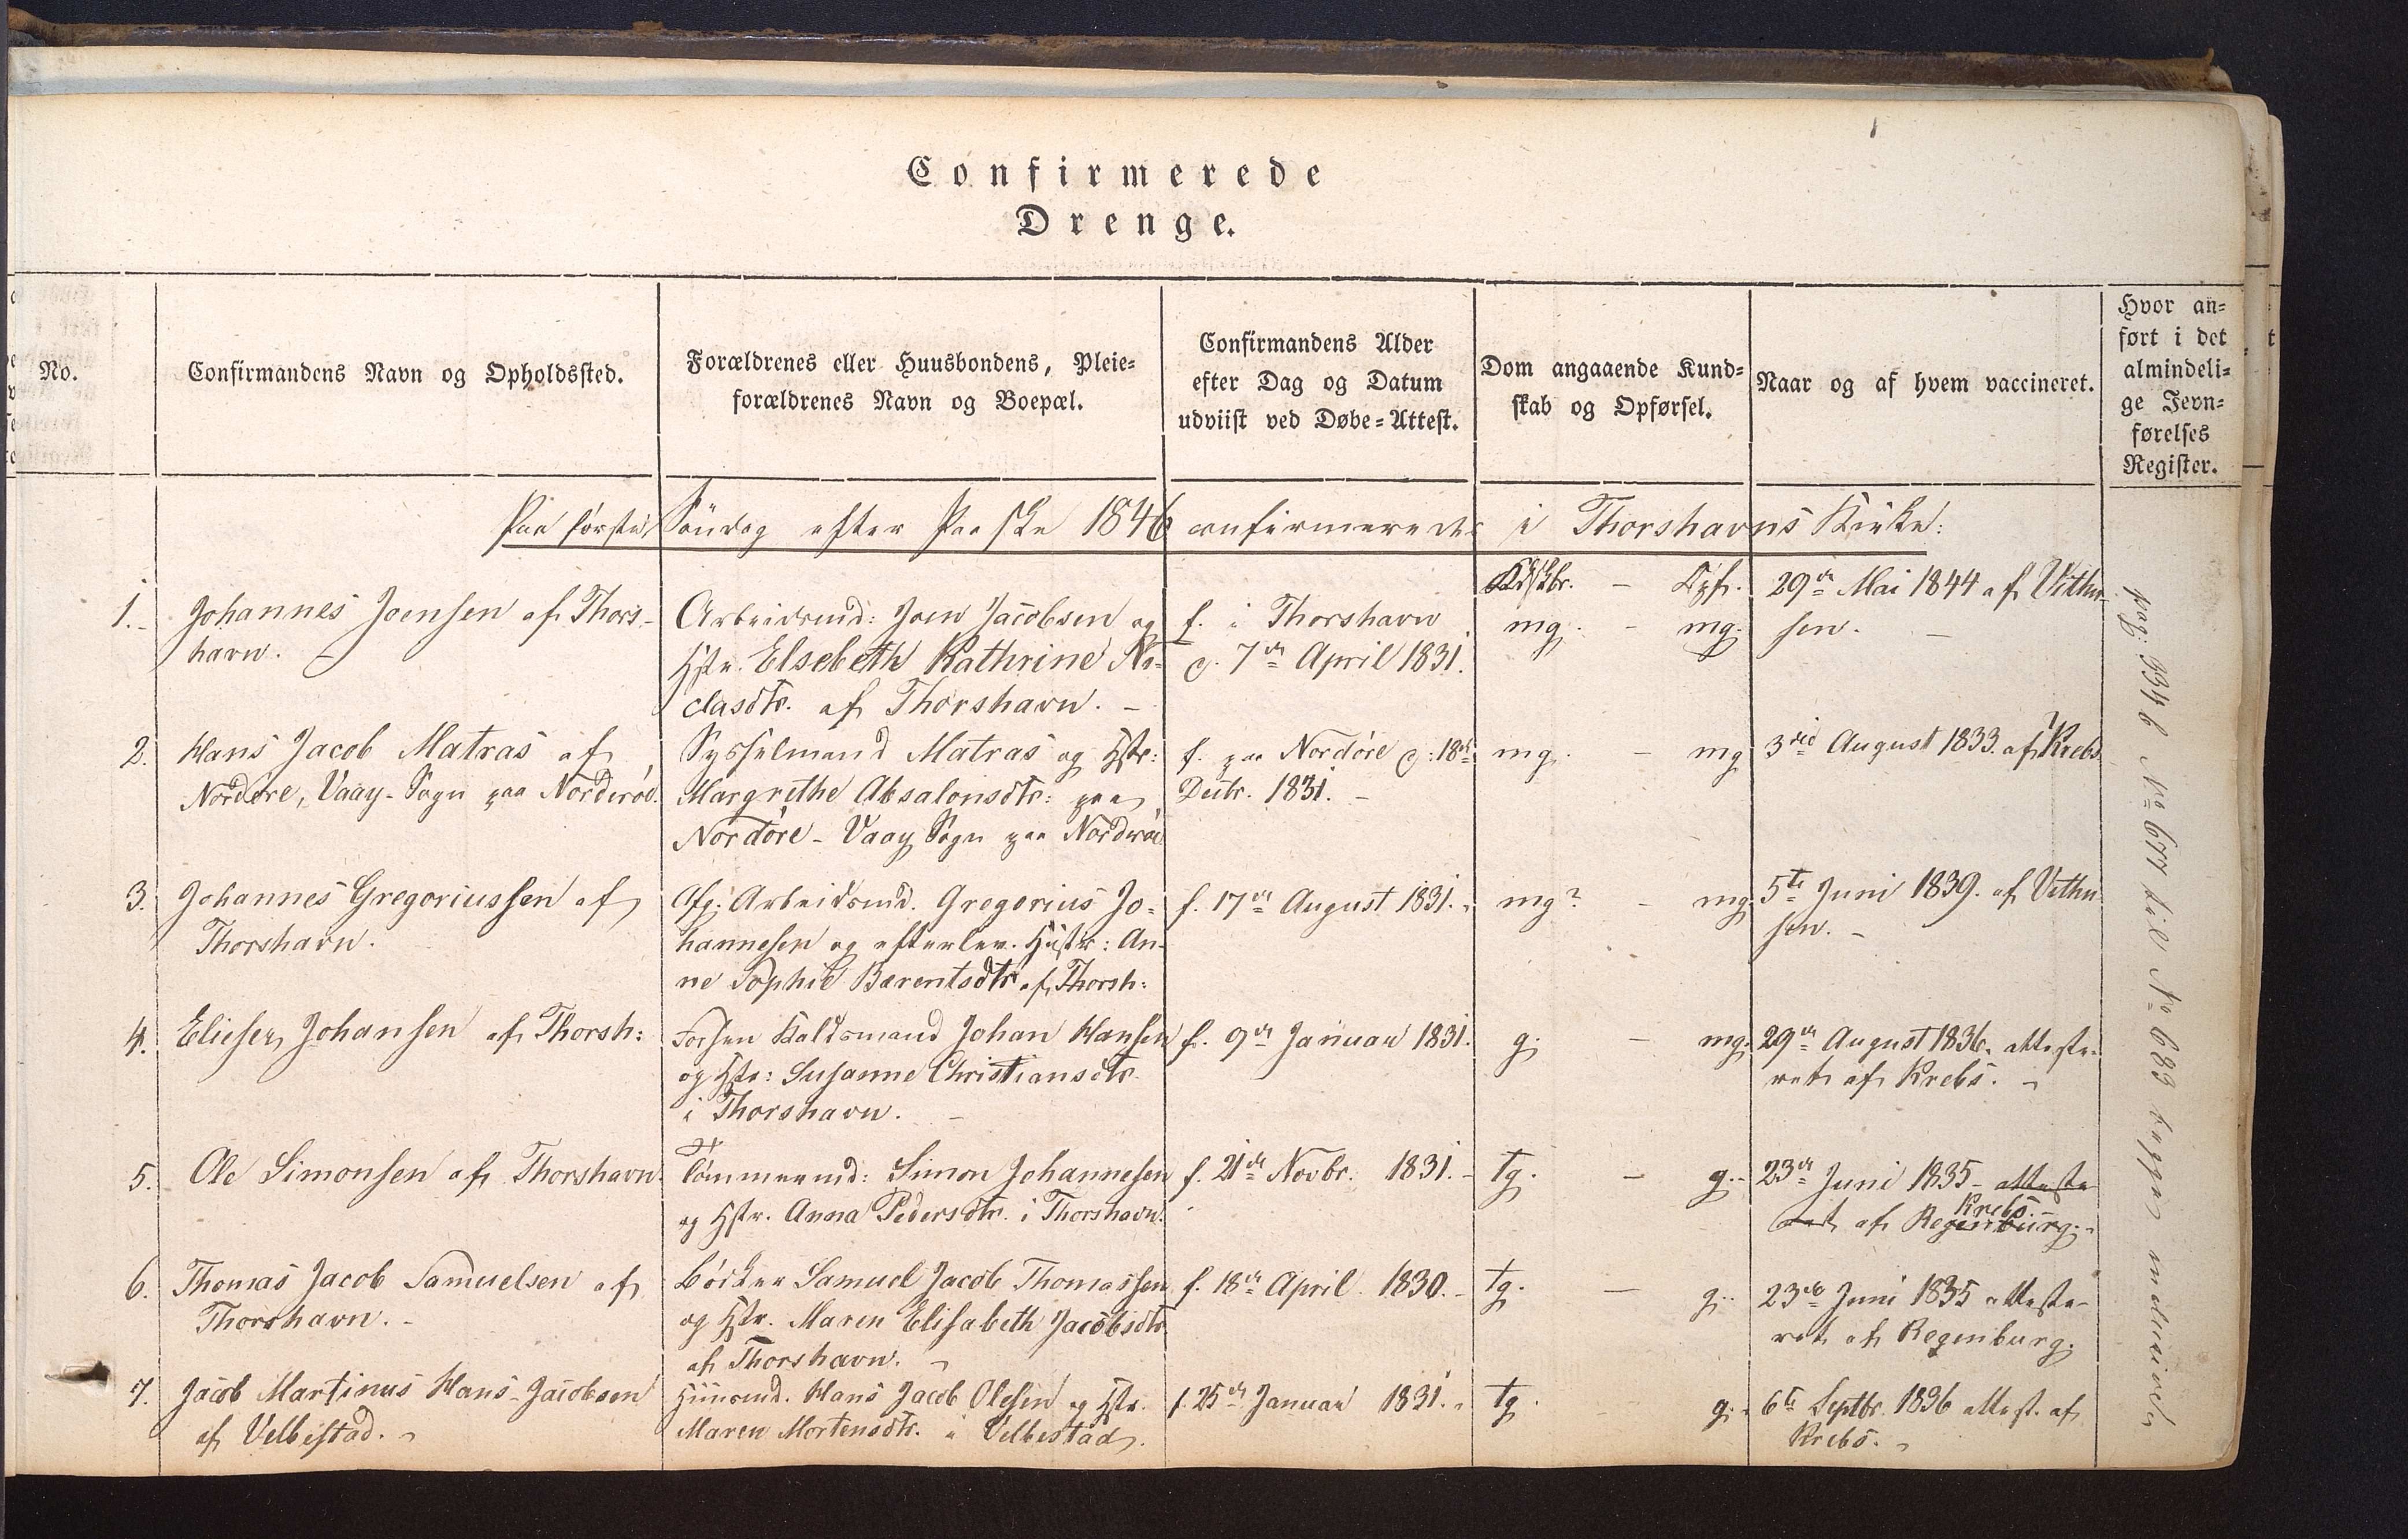 Confirmerede
Drenge.
No.
Confirmandens Navn og Opholdssted.
Forældrenes eller Huusbondens, Pleie=
forældrenes Navn og Boepæl.
Confirmandens Alder
efter Dag og Datum
udviist ved Døbe=Attest.
Dom angaaende Kund=
skab og Opførsel.
Naar og af hvem vaccineret.
Hvor an=
ført i det
almindeli=
ge Jevn=
førelses
Register.
Paa første Søndag efter Paaske 1846 confirmerede i Thorshavns Kirke:
Kdskbr. - Opf.
1. Johannes Joensen af Thors-
havn. -
Arbeidsmd: Joen Jacobsen og
Hstr. Elsebeth Kathrine Ni-
clasdtr. af Thorshavn. -
f. i Thorshavn
d. 7de April 1831.
mg. - mg.
29de Mai 1844 af Vithu-
sen. -
2. Hans Jacob Matras af
Nordøre, Vaay-Sogn paa Norderøe.
Sysselmand Matras og Hstr:
Margrethe Absalonsdtr: paa
Nordøre - Vaay Sogn paa Norderøe
f. paa Nordøre d: 18de
Decbr. 1831. -
mg. - mg
3die August 1833. af Krebs
3. Johannes Gregoriussen af
Thorshavn.
Afg. Arbeidsmd. Gregorius Jo-
hannesen og efterlev. Hustr: An-
ne Sophie Barentsdtr af Thorsh:
f. 17de August 1831. -
mg? - mg.
5te Juni 1839. af Vithu
sen. -
4. Elieser Johansen af Thorsh:
Johan Hansen
og Hstr: Susanne Christiansdtr.
i Thorshavn. -
f. 9de Januar 1831.
g. - mg.
29de August 1836. atteste-
ret af Krebs. -
5. Ole Simonsen af Thorshavn.
Tømmermd: Simon Johannesen
og Hstr. Anna Pedersdtr. i Thorshavn.
f. 21de Novbr. 1831. -
tg. - g. -
23de Juni 1835 - atteste
ret af Regenburg. -
Krebs. -
6. Thomas Jacob Samuelsen af
Thorshavn. -
Bødker Samuel Jacob Thomassen
og Hstr. Maren Elisabeth Jacobsdtr.
af Thorshavn. -
f. 18de April 1830. -
tg. - g.
23de Juni 1835 atteste-
ret af Regenburg.
7. Jacob Martinus Hans-Jacobsen
af Velbestad. -
Huusmd. Hans Jacob Olesen og Hstr.
Maren Mortensdtr. i Velbestad.
f. 25de Januar 1831. -
tg. - g. -
6te Septbr. 1836 attest. af
Krebs. -
pag: 334 b No 677 til No 683 begge inclusive